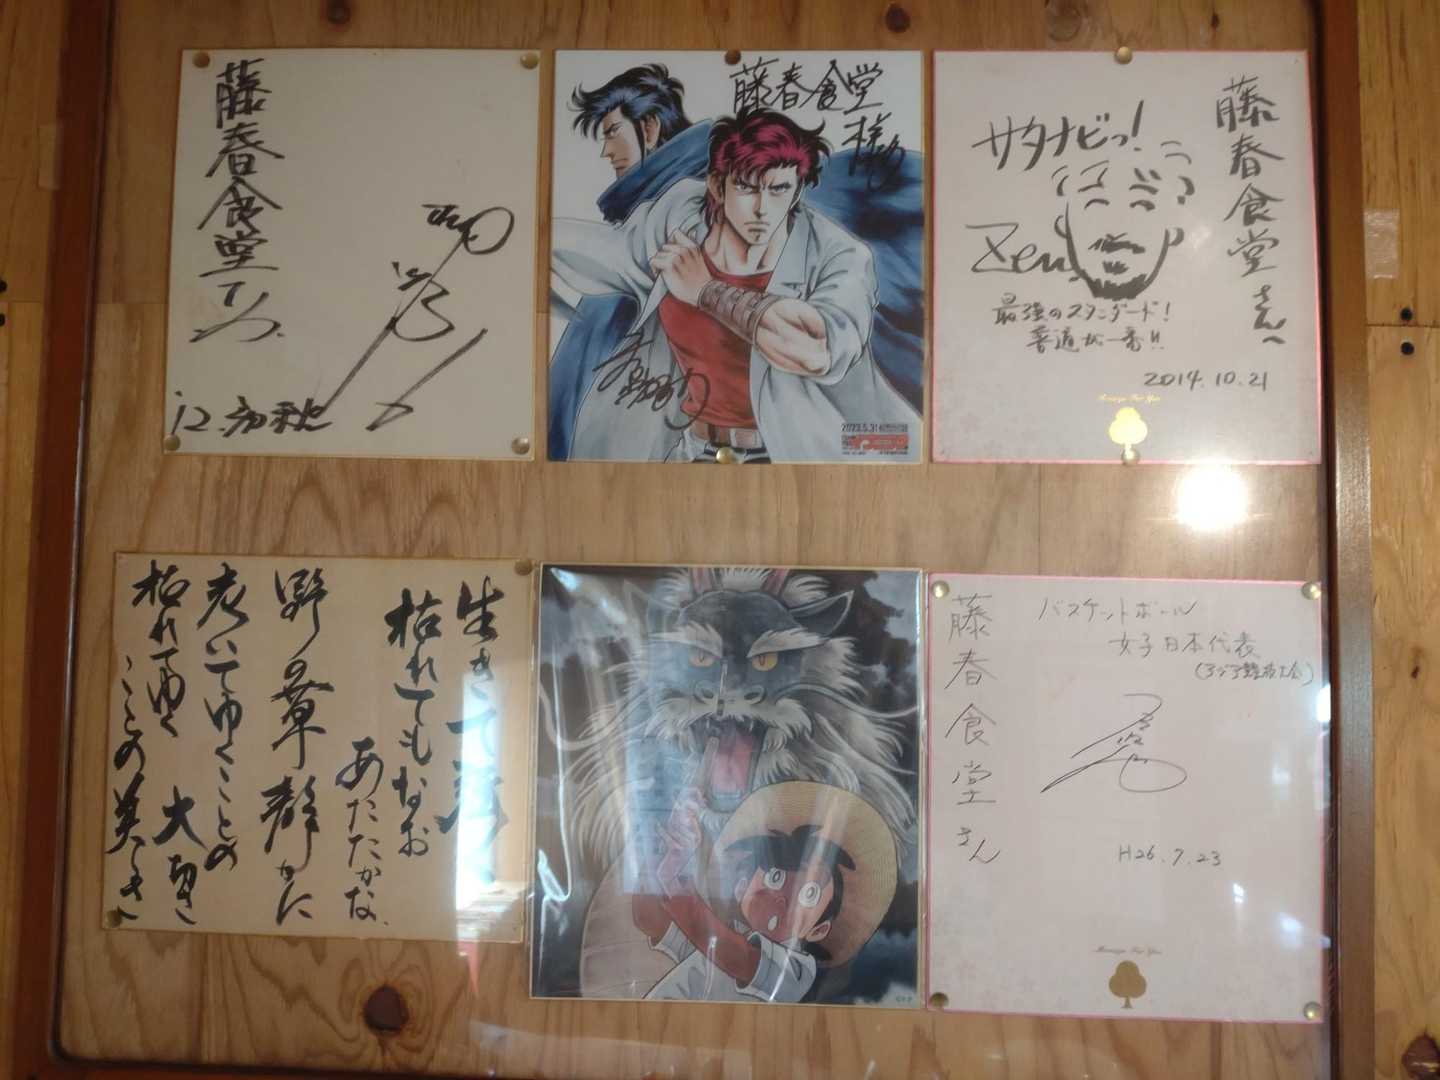 藤春食堂
12.初秋
藤春食堂
様
2023.5.31
藤春食堂さんへ
サタナビっ!
Zen
最強のスタンダード!
普道が一番!!
2014.10.21
生きて
枯れてもなお
あたたかな
野の草 静かに
老いてゆくことの
大切さ
枯れてゆく
ことの美しさ
藤春食堂さん
バスケットボール
女子日本代表
(アジア競技大会)
H26.7.23